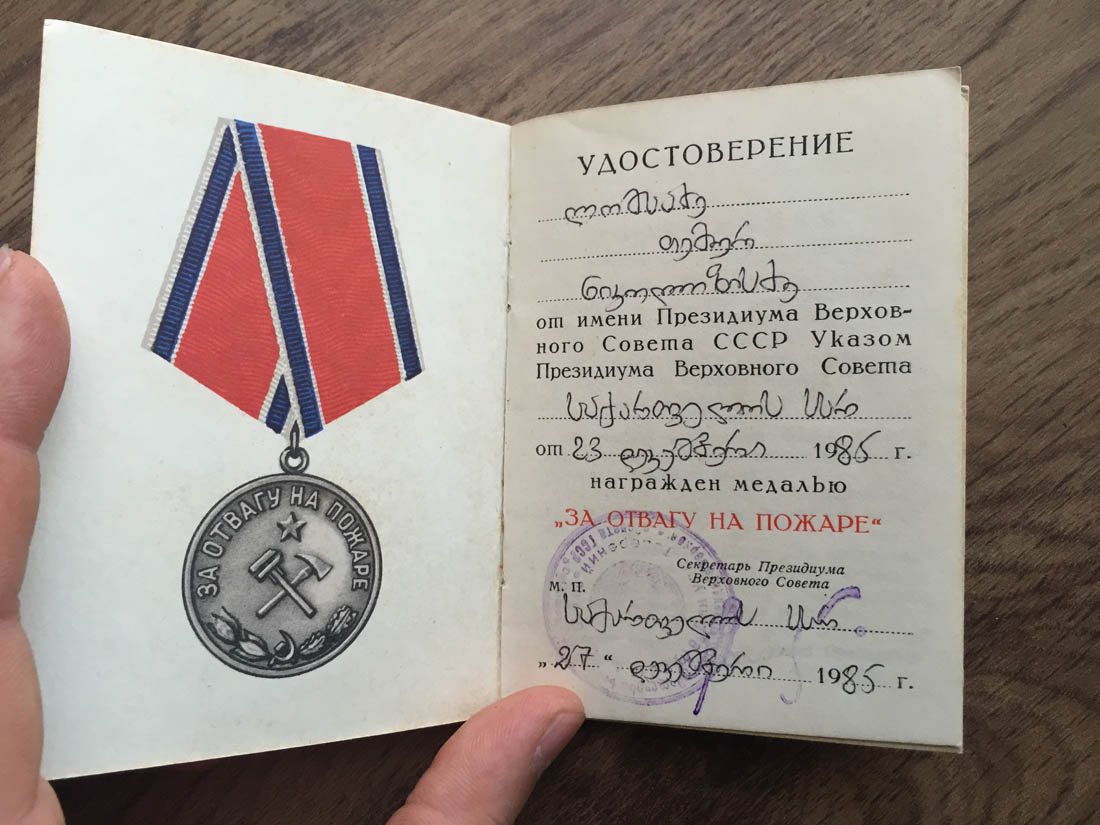 ЗА ОТВАГУ НА ПОЖАРЕ
УДОСТОВЕРЕНИЕ
ლომსაძე
თემური
ნიკოლოზის ძე
от имени Президиума Верхов-
ного Совета СССР Указом
Президиума Верховного Совета
საქართველოს სსრ
от 23 დეკემბერი 1985 г.
награжден медалью
„ЗА ОТВАГУ НА ПОЖАРЕ“
Секретарь Президиума
Верховного Совета
М. П.
საქართველოს სსრ
„27“ დეკემბერი 1985 г.